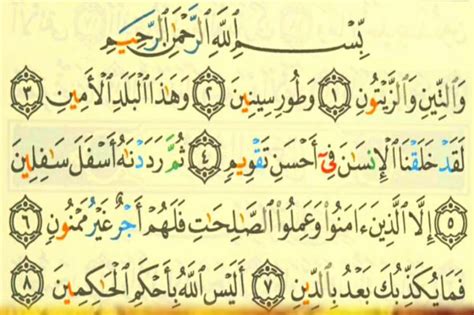 بِسْمِ اللَّهِ الرَّحْمَٰنِ الرَّحِيمِ
وَالتِّينِ وَالزَّيْتُونِ ١ وَطُورِ سِينِينَ ٢ وَهَٰذَا الْبَلَدِ الْأَمِينِ ٣
لَقَدْ خَلَقْنَا الْإِنسَانَ فِي أَحْسَنِ تَقْوِيمٍ ٤ ثُمَّ رَدَدْنَاهُ أَسْفَلَ سَافِلِينَ
٥ إِلَّا الَّذِينَ ءَامَنُوا وَعَمِلُوا الصَّالِحَاتِ فَلَهُمْ أَجْرٌ غَيْرُ مَمْنُونٍ ٦
فَمَا يُكَذِّبُكَ بَعْدُ بِالدِّينِ ٧ أَلَيْسَ اللَّهُ بِأَحْكَمِ الْحَاكِمِينَ ٨